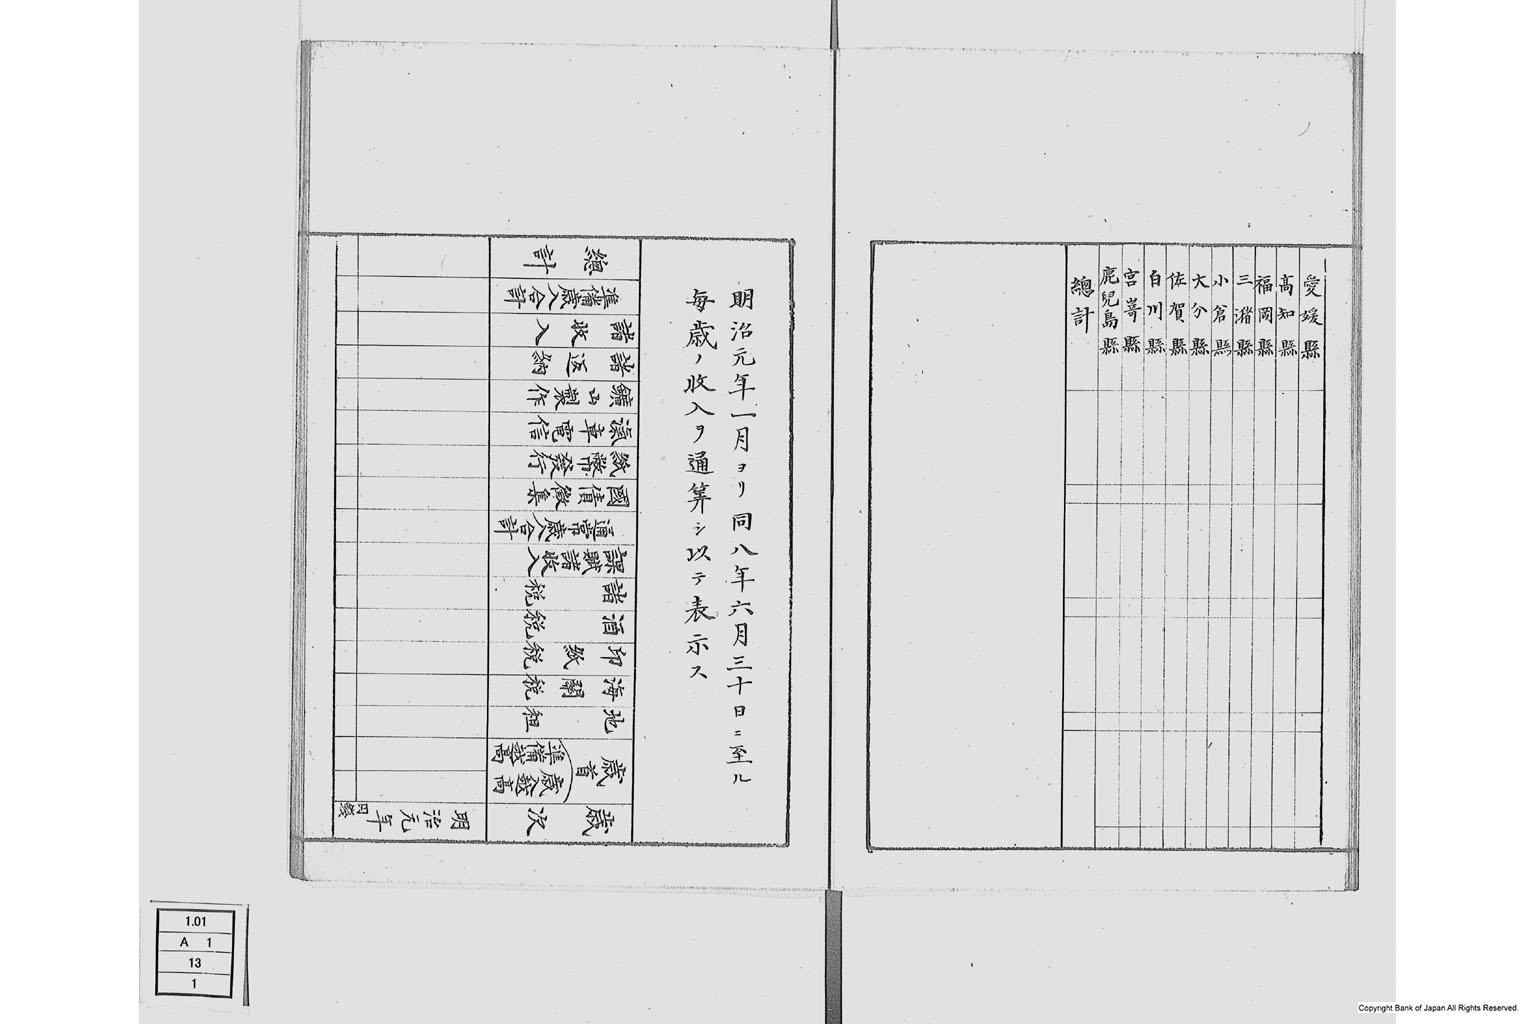 愛媛縣
高知縣
福岡縣
三潴縣
小倉縣
大分縣
佐賀縣
白川縣
宮嵜縣
鹿兒島縣
總計
明治元年一月ヨリ同八年六月三十日ニ至ル
毎歳ノ收入ヲ通算シ以テ表示ス
歳次
歳首
歳入殘高
準備越高
地租
海關税
印紙税
酒税
諸税
課賦諸收入
通常歳入合計
國債徴集
紙幣發行
滊車電信
鑛山製作
諸返納
諸收入
準備歳入合計
總計
明治元年
1.01
A 1
13
1
Copyright Bank of Japan All Rights Reserved.